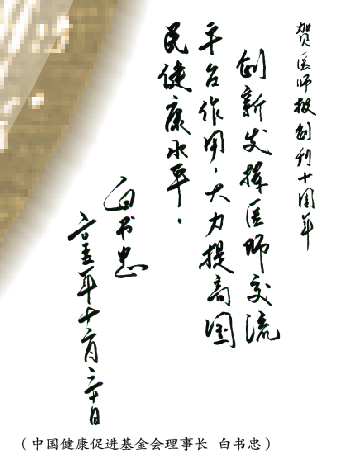 贺医师报创刊十周年
创新发挥医师交流
平台作用,大力提高国
民健康水平.
白书忠
二〇一五年十一月二十日
(中国健康促进基金会理事长 白书忠)